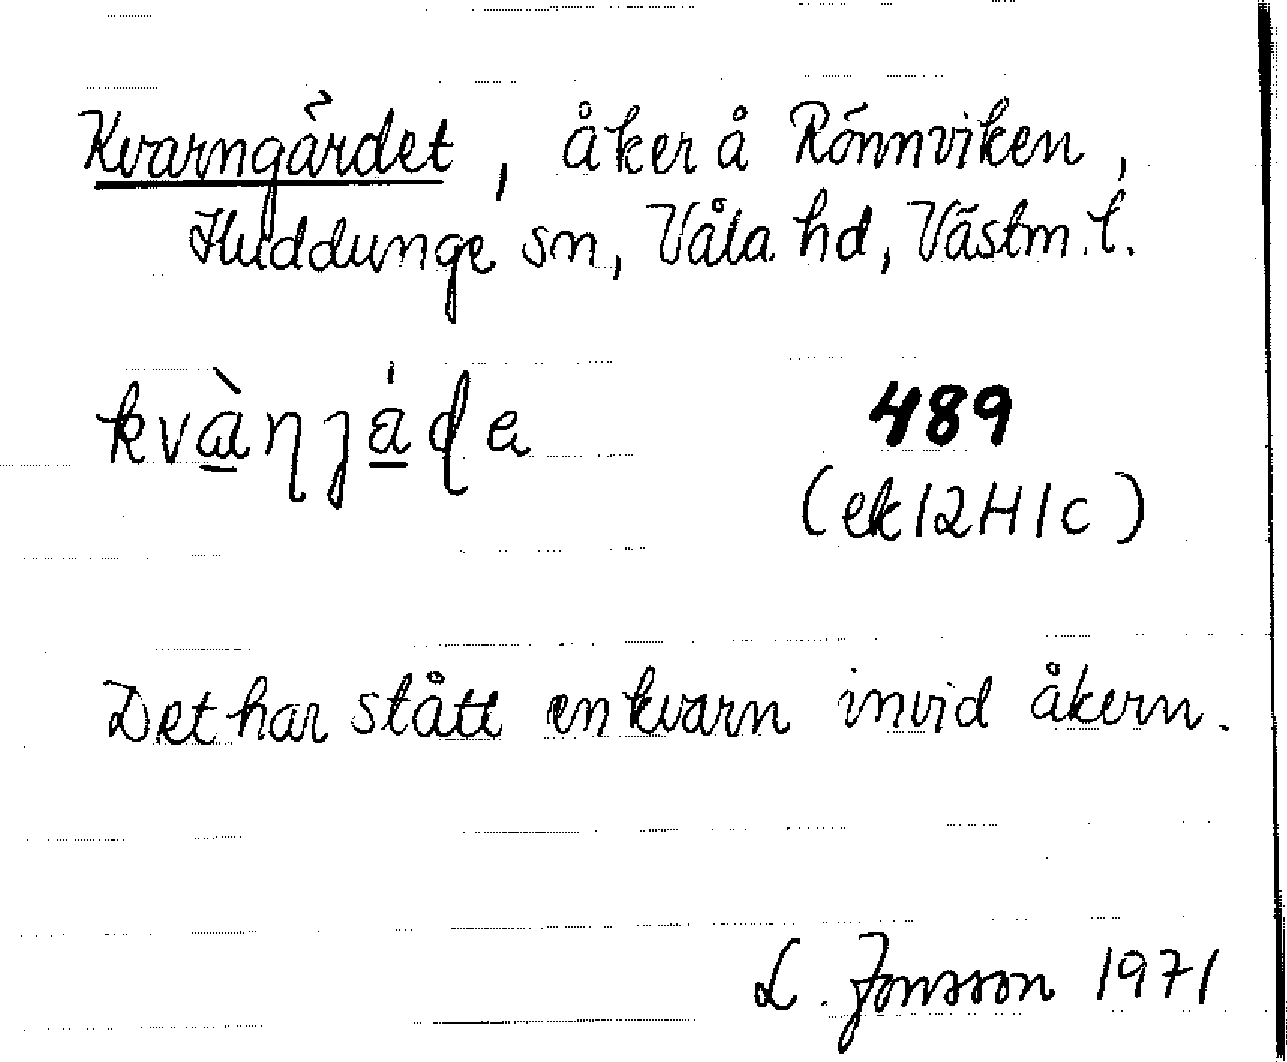 Kvarngärdet, åker å Rönnviken,
Huddunge sn, Våla hd, Västm. l.
kvàɳjá̱ɖe
489
(ek 12H1c)
Det har stått en kvarn invid åkern.
L. Jonsson 1971